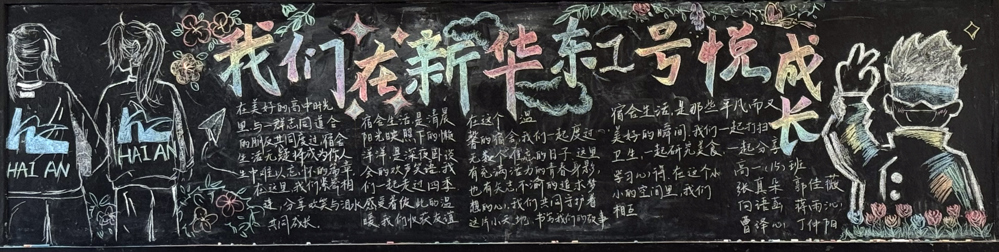 我们在新华东1号悦成长
HAI AN
HAI AN
在美好的高中时光
里与一群志同道合
的朋友共同度过，宿舍
生活无疑将成为你人
生中难以忘怀的篇章。
在这里，我们朝夕相
处，分享欢笑与泪水
共同成长。
宿舍生活是清晨
阳光映照下的懒
洋洋，是深夜卧谈
会的欢声笑语，我
们一起走过四季，
感受着彼此的温
暖，我们收获友谊
在这个 温
馨的宿舍，我们一起度过
无数个难忘的日子，这里
有充满活力的青春身影，
也有矢志不渝的追求梦
想的心，我们共同守护着
这片小天地，书写我们的故事
宿舍生活，是那些平凡而又
美好的瞬间，我们一起打扫
卫生，一起研究美食，一起分享
学习心得，在这个小
小的空间里，我们
相互
高一（15）班
张真朵 郭佳薇
闫语菡 蒋雨心
曹绎心 丁仲阳